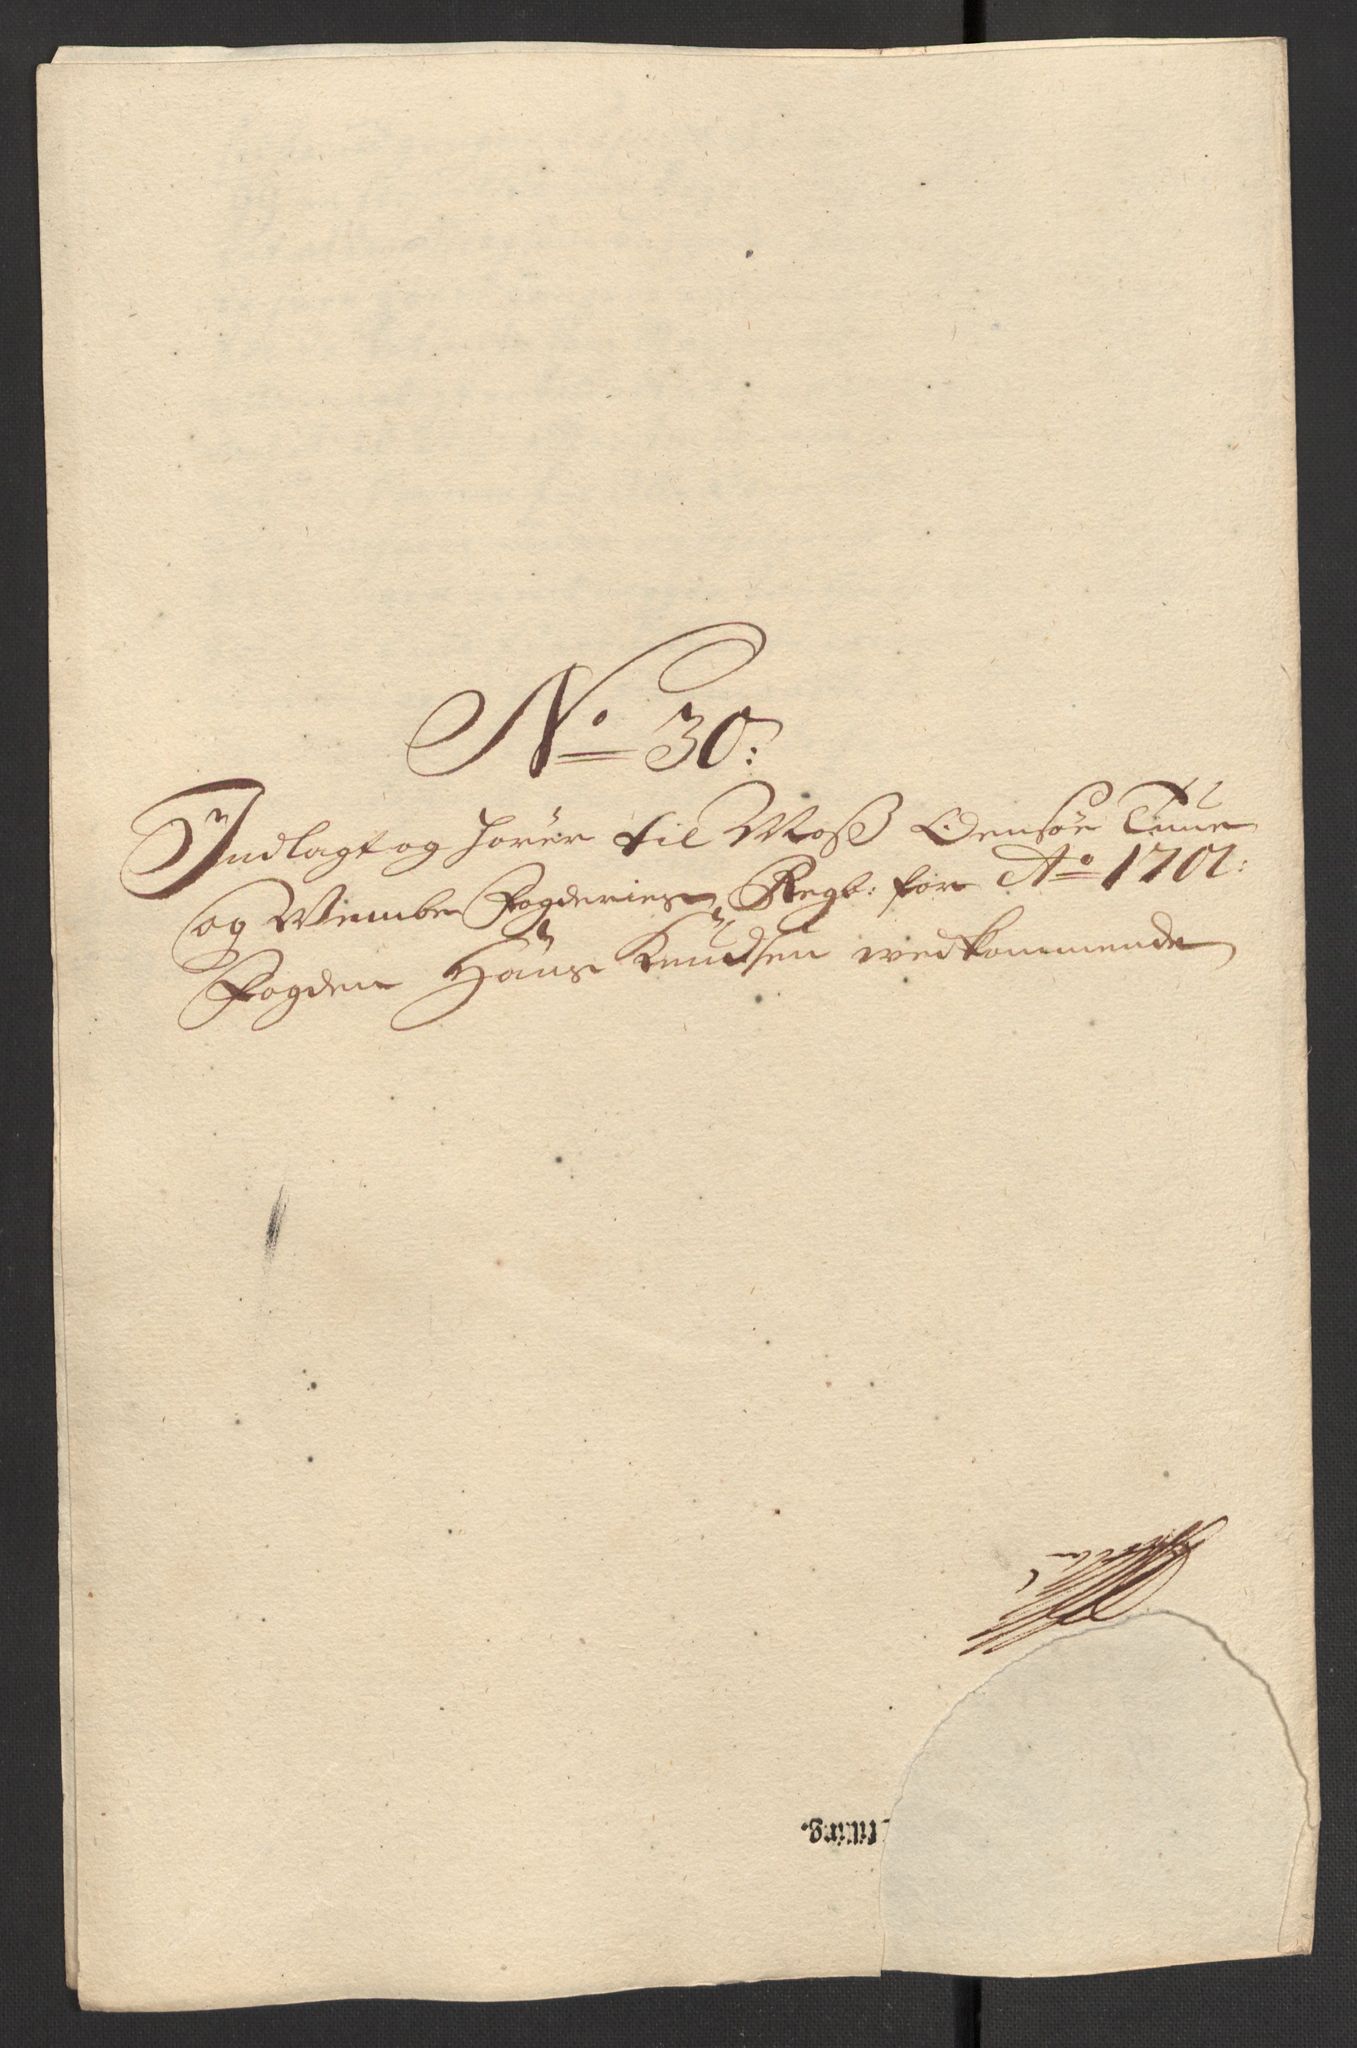 No 30:
Indlagt og hører til Moß Oensøe Tune
og Wembe Fogderies Regb: for Ao 1701:
Fogden Hans Knudsen wedkommende